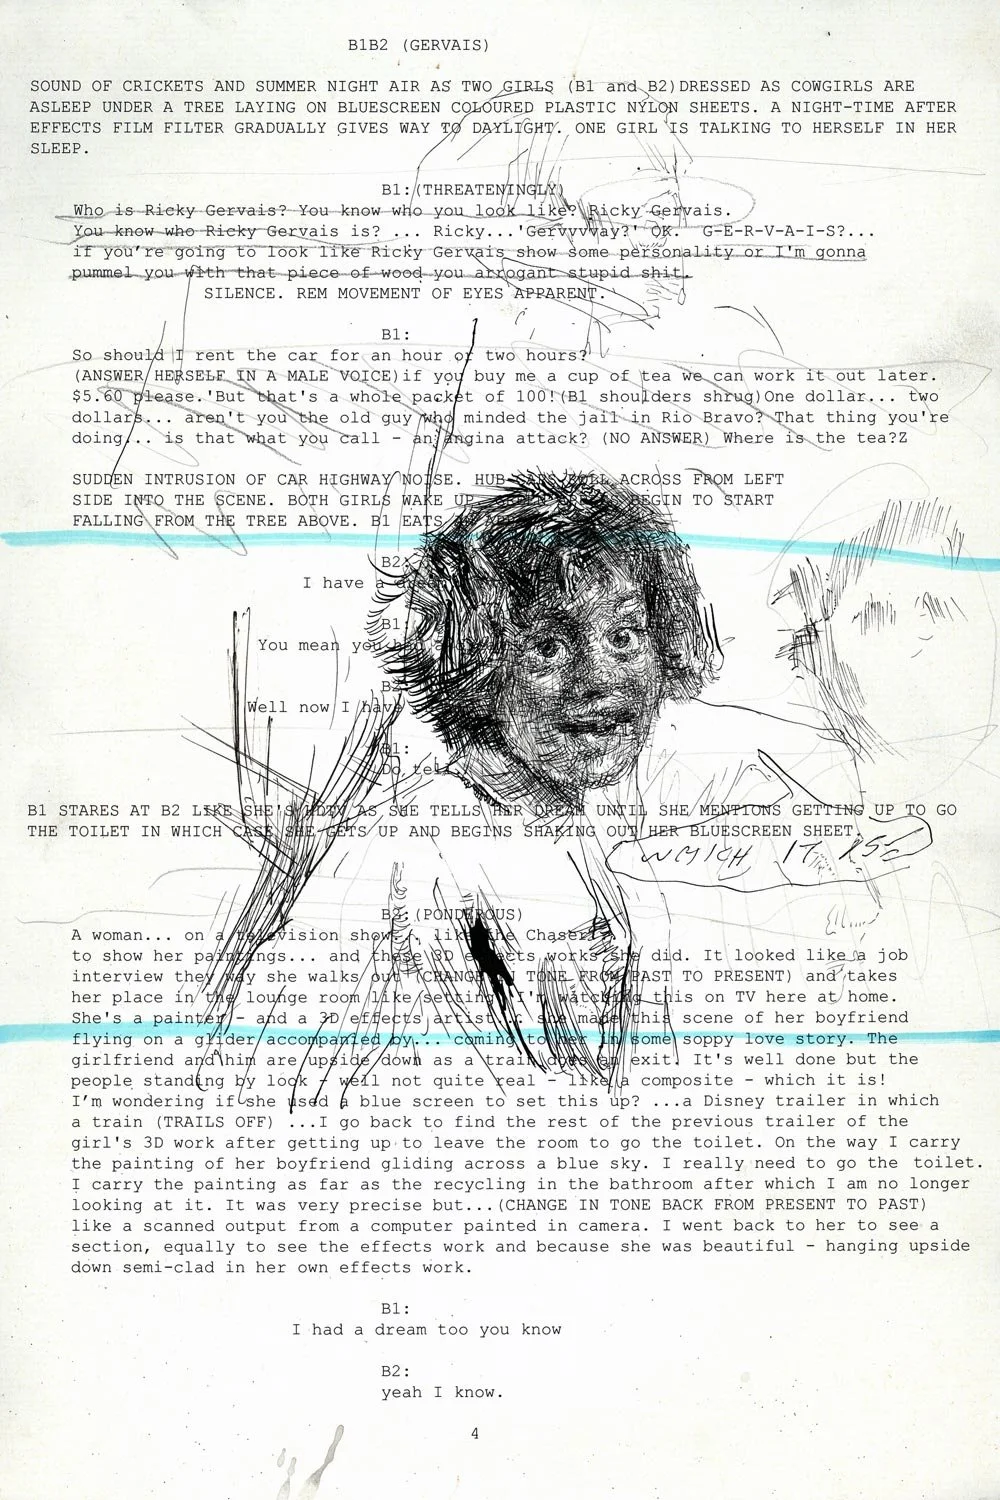 B1B2 (GERVAIS)
SOUND OF CRICKETS AND SUMMER NIGHT AIR AS TWO GIRLS (B1 and B2)DRESSED AS COWGIRLS ARE
ASLEEP UNDER A TREE LAYING ON BLUESCREEN COLOURED PLASTIC NYLON SHEETS. A NIGHT-TIME AFTER
EFFECTS FILM FILTER GRADUALLY GIVES WAY TO DAYLIGHT. ONE GIRL IS TALKING TO HERSELF IN HER
SLEEP.
B1:(THREATENINGLY)
Who is Ricky Gervais? You know who you look like? Ricky Gervais.
You know who Ricky Gervais is? ... Ricky...'Gervvvvay?' OK. G-E-R-V-A-I-S?...
if you're going to look like Ricky Gervais show some personality or I'm gonna
pummel you with that piece of wood you arrogant stupid shit.
SILENCE. REM MOVEMENT OF EYES APPARENT.
B1:
So should I rent the car for an hour or two hours?
(ANSWER HERSELF IN A MALE VOICE)if you buy me a cup of tea we can work it out later.
$5.60 please.'But that's a whole packet of 100!(B1 shoulders shrug)One dollar... two
dollars... aren't you the old guy who minded the jail in Rio Bravo? That thing you're
doing... is that what you call - an angina attack? (NO ANSWER) Where is the tea?Z
SUDDEN INTRUSION OF CAR HIGHWAY NOISE. HUB ACROSS FROM LEFT
SIDE INTO THE SCENE. BOTH GIRLS WAKE UP BEGIN TO START
FALLING FROM THE TREE ABOVE. B1 EATS
B2:
I have a
B1:
You mean you had a
B2
Well now I have
B1:
Do tell
B1 STARES AT B2 LIKE SHE'S AS SHE TELLS HER DREAM UNTIL SHE MENTIONS GETTING UP TO GO
THE TOILET IN WHICH CASE SHE GETS UP AND BEGINS SHAKING OUT HER BLUESCREEN SHEET.
WHICH IT IS
B2:(PONDEROUS)
A woman... on a television show... like the Chaser...
to show her paintings... and these 3D effects works she did. It looked like a job
interview they way she walks out (CHANGE IN TONE FROM PAST TO PRESENT) and takes
her place in the lounge room like setting I'm watching this on TV here at home.
She's a painter - and a 3D effects artist... she made this scene of her boyfriend
flying on a glider accompanied by... coming to her in some soppy love story. The
girlfriend and him are upside down as a train does an exit. It's well done but the
people standing by look - well not quite real - like a composite - which it is!
I'm wondering if she used a blue screen to set this up? ...a Disney trailer in which
a train (TRAILS OFF) ...I go back to find the rest of the previous trailer of the
girl's 3D work after getting up to leave the room to go the toilet. On the way I carry
the painting of her boyfriend gliding across a blue sky. I really need to go the toilet.
I carry the painting as far as the recycling in the bathroom after which I am no longer
looking at it. It was very precise but...(CHANGE IN TONE BACK FROM PRESENT TO PAST)
like a scanned output from a computer painted in camera. I went back to her to see a
section, equally to see the effects work and because she was beautiful - hanging upside
down semi-clad in her own effects work.
B1:
I had a dream too you know
B2:
yeah I know.
4